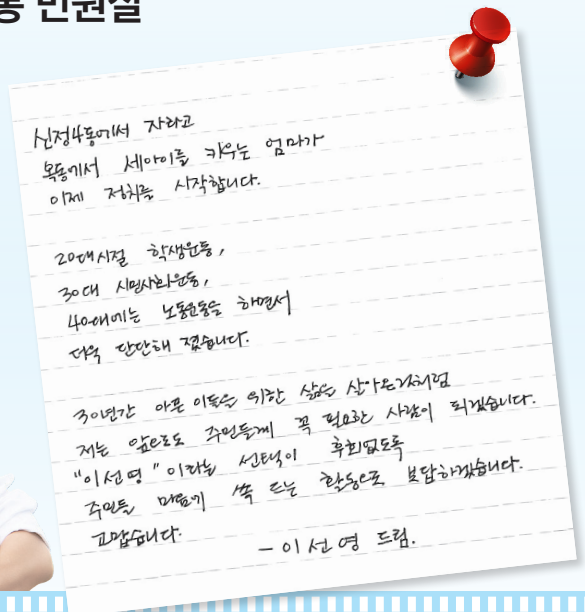 동 민원실
신정4동에서 자라고
목동에서 세아이를 키우는 엄마가
이제 정치를 시작합니다.
20대시절 학생운동,
30대 시민사회운동,
40대에는 노동운동을 하면서
더욱 단단해 졌습니다.
30년간 아픈 이들을 위한 삶을 살아온것처럼
저는 앞으로도 주민들께 꼭 필요한 사람이 되겠습니다.
"이선영"이라는 선택이 후회없도록
주민들 마음에 쏙 드는 활동으로 보답하겠습니다.
고맙습니다.
- 이선영 드림.